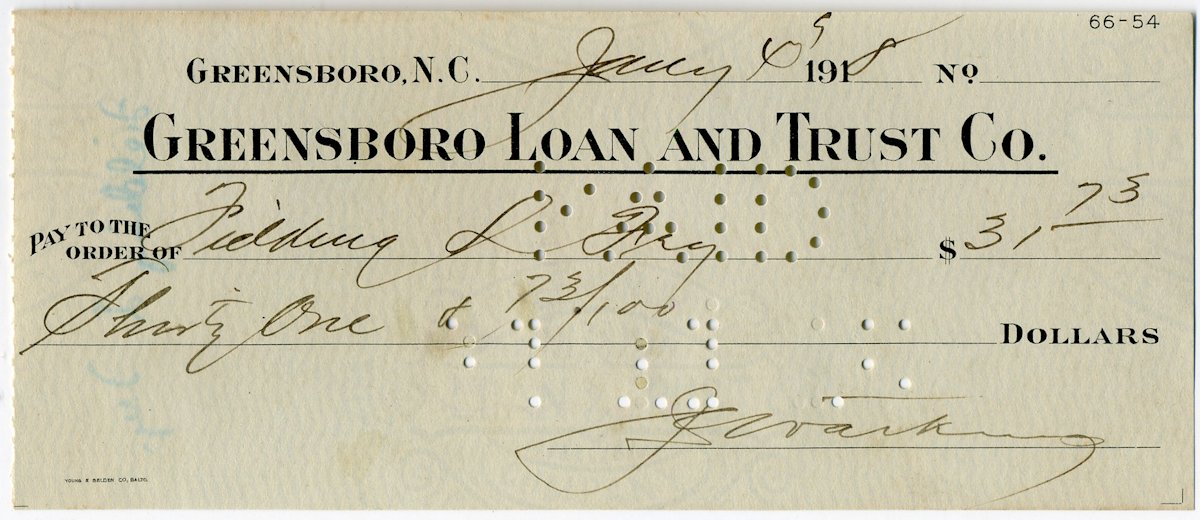 66-54
Greensboro, N.C. Jany 4 1918 No
Greensboro Loan and Trust Co.
Pay to the order of Fielding L Fry $ 31 73
Thirty One & 73/100 Dollars
Young & Selden Co, Balto.